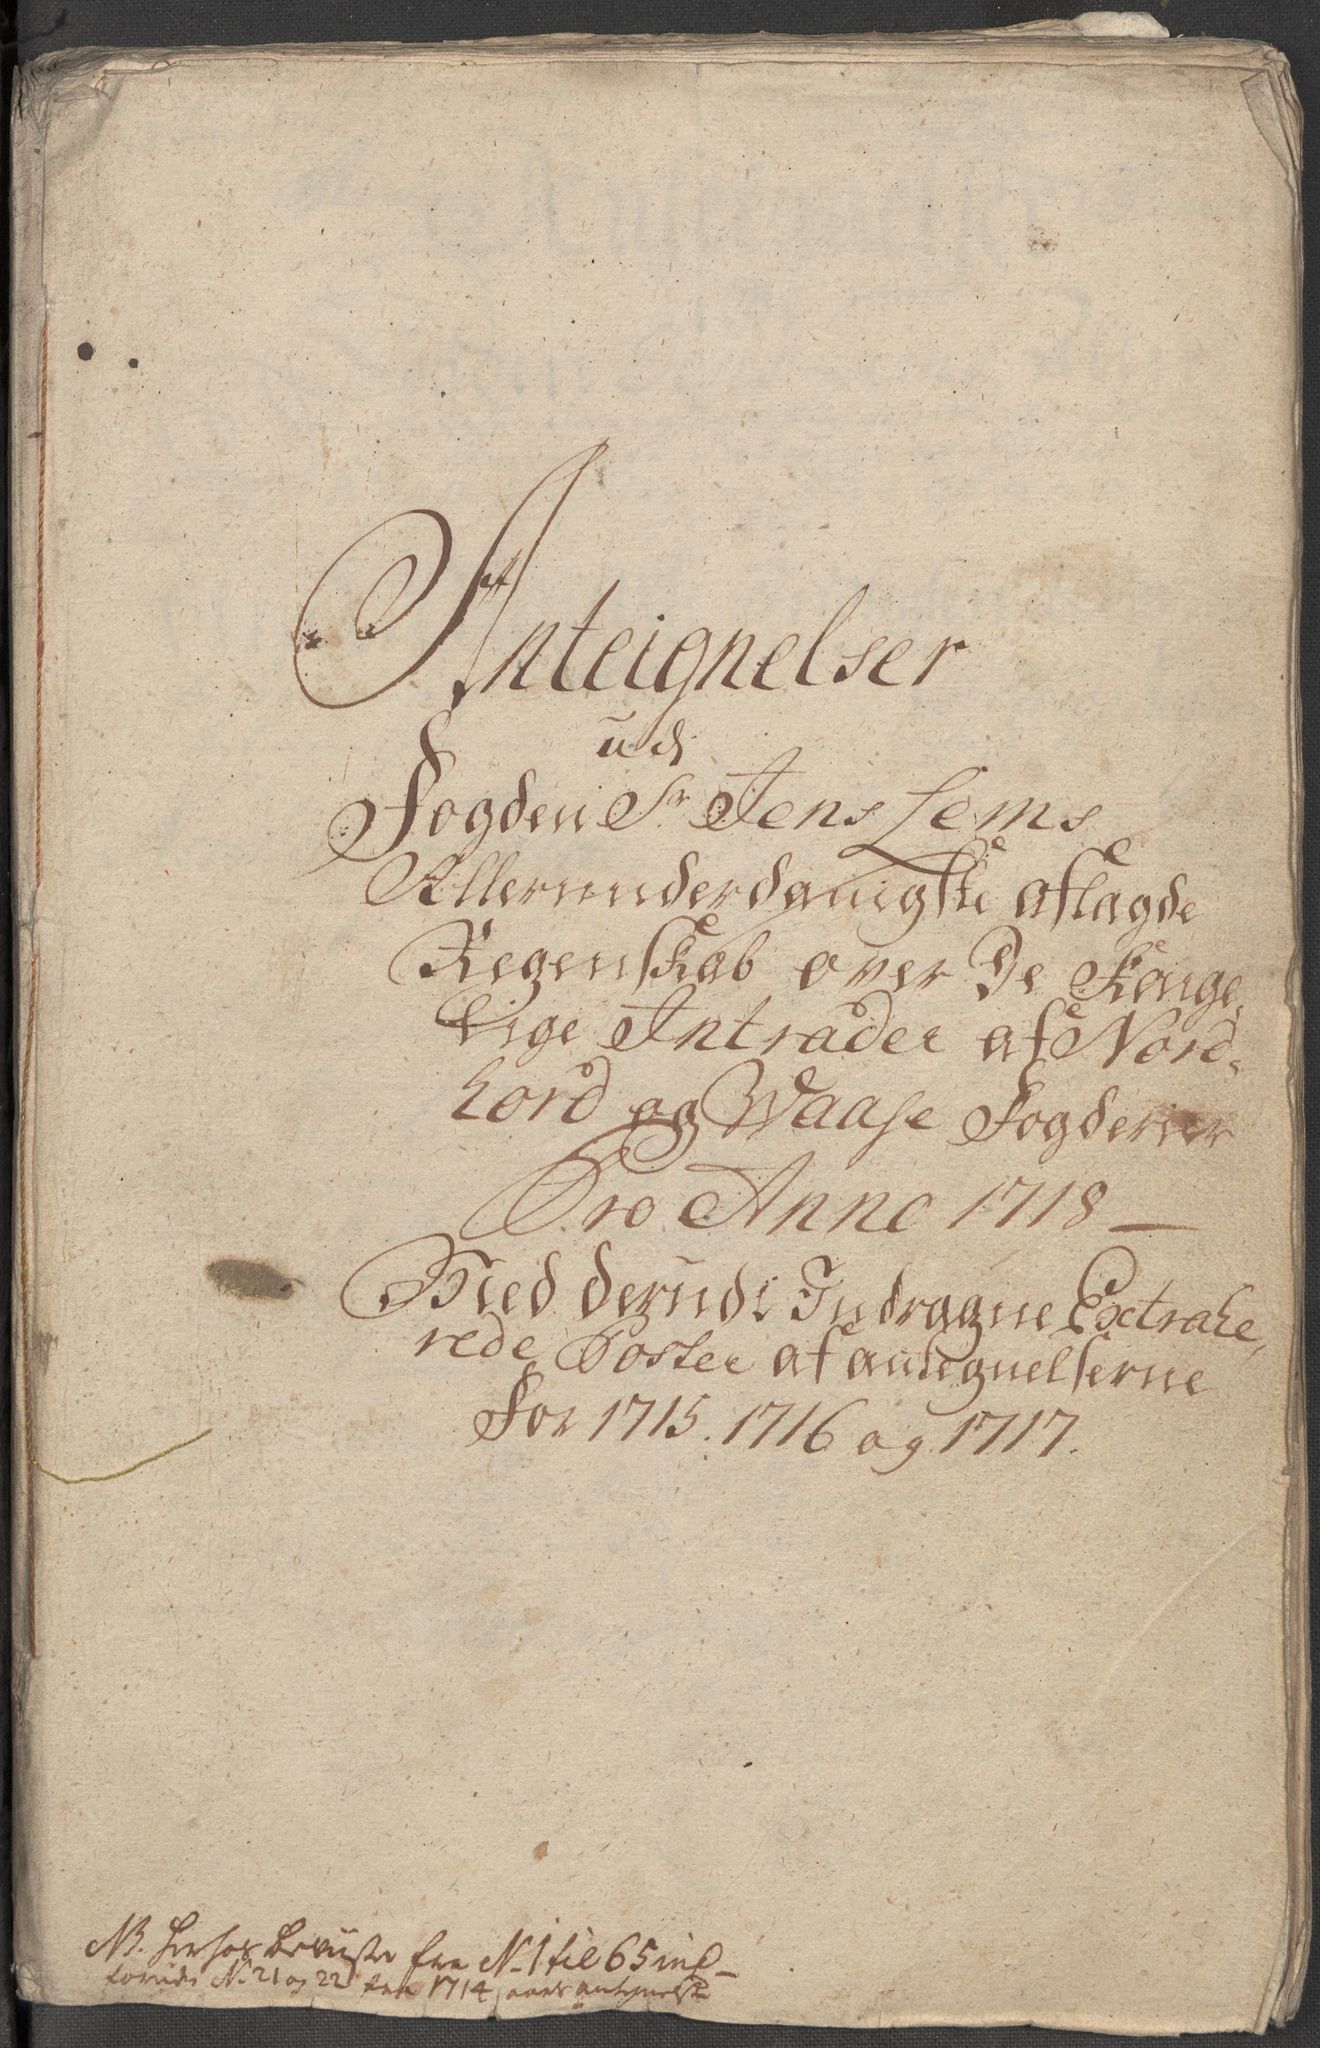 Anteignelser
udj
Fogden Sr Jens Lems
Allerunderdanigste aflagde
Regenskab over De Konge,
lige Intrader af Nord-
hord og Waase Fogderier
Pro Anno 1718
Med derudi Indragne Extrahe,
rede Poster af antegnelserne
For 1715. 1716 og 1717.
NB. herhos beviiser fra No 1 til 65 incl
foruden No. 21 og 22 fra 1714 aars antegnelse